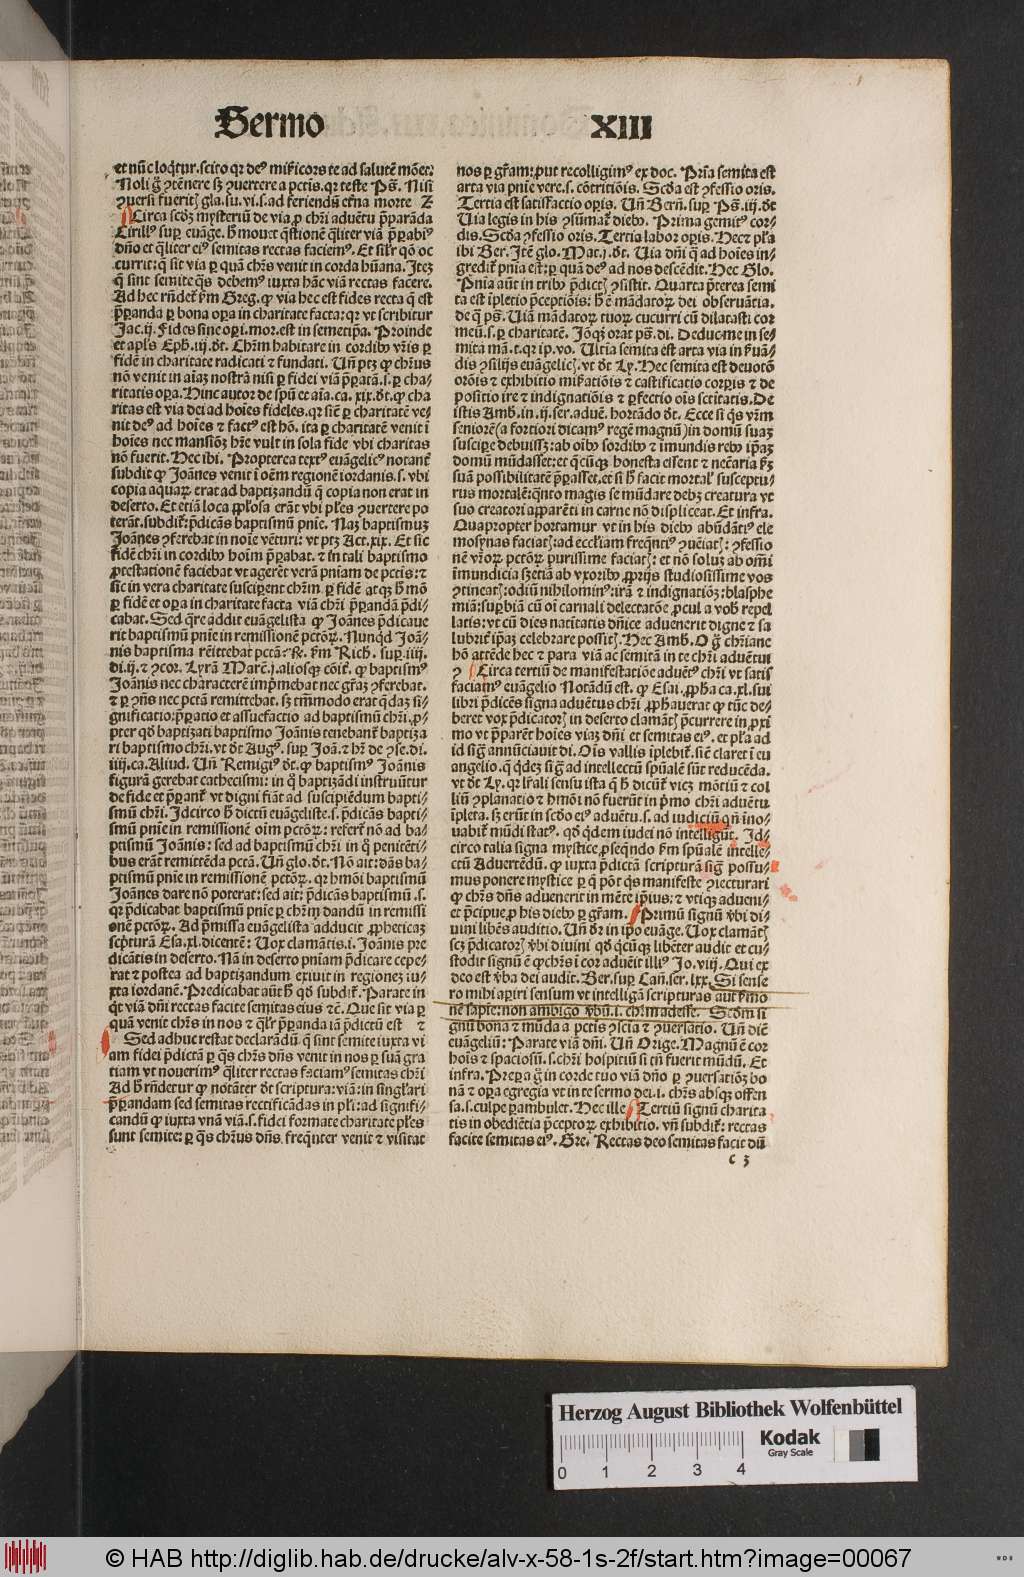 Sermo XIII
et nūc loq̄tur. scito qꝛ deꝰ miẜicors te ad salutē mōet:
Noli ḡ ꝯtēnere sꝫ ꝯuertere a pctis. qꝛ teste Pꝭ. Nisi
ꝯuersi fueritꝭ gla. su. vi. s. ad feriendū etīna morte ⁊
Circa scdꝫ mysteriū de via, ꝓ chꝛi aduētu p̄paranda
Cirillꝰ suꝑ euāge. h̄ mouet q̄stionē q̄liter viā p̄parabiꝰ
dn̄o et q̄liter eiꝰ semitas rectas faciemꝰ. Et sil̓r qō oc
currit: q̄ sit via ꝑ quā chꝛs venit in corda hūana. Iteꝫ
q̄ sint semite q̄s debemꝰ iuxta hāc viā rectas facere.
Ad hec rn̄det̄ ẜm Greg. ꝙ via hec est fides recta q̄ est
p̄paranda ꝑ bona oꝑa in charitate facta: qꝛ vt scribitur
Jac. ij. Fides sine oꝑi. mor. est in semetip̄a. Proinde
et apl̓s Eph. iij. dt̄. Chꝛm habitare in cordibꝰ vr̄is ꝑ
fidē in charitate radicati ⁊ fundati. Vn̄ ptꝫ ꝙ chꝛus
nō venit in aīaꝫ nostrā nisi ꝑ fidei viā p̄paratā. s. ꝑ cha⸗
ritatis oꝑa. Hinc autor de spū et aīa. ca. xix. dt̄. ꝙ cha
ritas est via dei ad hoīes fideles. qꝛ sic̄ ꝑ charitatē ve⸗
nit deꝰ ad hoīes ⁊ factꝰ est hō. ita ꝑ charitatē venit ī
hoīes nec mansionē hr̄e vult in sola fide vbi charitas
nō fuerit. Hec ibi. Propterea textꝰ euāgelicꝰ notant̄
subdit ꝙ Joānes venit ī oēm regionē iordanis. s. vbi
copia aquaꝝ erat ad baptizandū q̄ copia non erat in
deserto. Et etiā loca ꝓp̄losa erāt vbi pl̓es ꝯuertere po
terāt. subdit̄: p̄dicās baptismū pn̄ie. Naꝫ baptismuꝫ
Joānes ꝯferebat in noīe vēturi: vt ptꝫ Act. xix. Et sic
fidē chꝛi in cordibꝰ hoīm p̄parabat. ⁊ in tali baptismo
ꝓtestationē faciebat vt agerēt verā pn̄iam de pctis: ⁊
sic in vera charitate susciperent chꝛm ꝑ fidē atqꝫ h̄ mō
ꝑ fidē et oꝑa in charitate facta viā chꝛi p̄parandā p̄di⸗
cabat. Sed q̄re addit euāgelista ꝙ Joānes p̄dicaue
rit baptismū pn̄ie in remissionē pctōꝝ. Nunqd̓ Joā⸗
nis baptisma remittebat pctā: ℟. ẜm Rich. suꝑ. iiij.
di. ij. ⁊ ꝯcor. Lyrā Marc̄. j. aliosqꝫ cōit̄. ꝙ baptismꝰ
Joānis nec characterē imp̄mebat nec gr̄aꝫ ꝯferebat.
⁊ ꝑ ꝯn̄s nec pctā remittebat. sꝫ tm̄modo erat q̄daꝫ si⸗
gnificatio: p̄paratio et assuefactio ad baptismū chꝛi. ꝓ⸗
pter qd̓ baptizati baptismo Joānis tenebant̄ baptiza
ri baptismo chꝛi. vt dt̄ Augꝰ. suꝑ Joā. ⁊ hr̄ de ꝯse. di.
iiij. ca. Aliud. Vn̄ Remigiꝰ dt̄. ꝙ baptismꝰ Joānis
figurā gerebat cathecismi: in q̄ baptizādi instruūtur
de fide et p̄parant̄ vt digni fiāt ad suscipiēdum bapti⸗
smū chꝛi. Idcirco h̄ dictū euāgeliste. s. p̄dicās bapti⸗
smū pn̄ie in remissionē oīm pctōꝝ: refert̄ nō ad ba⸗
ptismū Joānis: sed ad baptismū chꝛi in q̄ penitēti⸗
bus erāt remittēda pctā. Vn̄ glo. dt̄. Nō ait: dās ba⸗
ptismū pn̄ie in remissionē pctōꝝ. qꝛ hmōi baptismū
Joānes dare nō poterat: sed ait: p̄dicās baptismū. s.
qꝛ p̄dicabat baptismū pn̄ie ꝑ chꝛm dandū in remissi
onē pctōꝝ. Ad p̄missa euāgelista adducit ꝓpheticaꝫ
scp̄turā Esa. xl. dicentē: Vox clamātis. i. Joānis pre
dicātis in deserto. Nā in deserto pn̄iam p̄dicare cepe⸗
rat ⁊ postea ad baptizandum exiuit in regioneꝫ iu⸗
xta iordanē. Predicabat aūt h̄ qd̓ subdit̄. Parate in
qt̄ viā dn̄i rectas facite semitas eius ⁊c̄. Que sit via ꝑ
quā venit chꝛs in nos ⁊ q̄l̓r p̄paranda iā p̄dictū est ⁊
Sed adhuc restat declarādū q̄ sint semite iuxta vi
am fidei p̄dictā ꝑ q̄s chꝛs dn̄s venit in nos ꝑ suā gra
tiam vt nouerimꝰ q̄liter rectas faciamꝰ semitas chꝛi
Ad h̄ rn̄detur ꝙ notāter dt̄ scriptura: viā: in singl̓ari
p̄parandam sed semitas rectificādas in pl̓i: ad signifi⸗
candū ꝙ iuxta vnā viā. s. fidei formate charitate pl̓es
sunt semite: ꝑ q̄s chꝛus dn̄s. freq̄nter venit ⁊ visitat
nos ꝑ gr̄am: ꝓut recolligimꝰ ex doc. Pri̅a semita est
arta via pn̄ie vere. s. cōtritiōis. Scd̓a est ꝯfessio oris.
Tertia est satisfactio oꝑis. Vn̄ Bern̄. suꝑ Pꝭ. iij. dt̄
Uia legis in his ꝯsūmat̄ diebꝰ. Prima gemitꝰ cor⸗
dis. Scd̓a ꝯfessio oris. Tertia labor oꝑis. Hecꝫ pl̓a
ibi Ber. Itē glo. Mat. h. dt̄. Via dn̄i q̄ ad hoīes in⸗
gredit̄ pn̄ia est: ꝑ quā deꝰ ad nos descēdit. Hec Glo.
Pn̄ia aūt in tribꝰ p̄dictꝭ ꝯsistit. Quarta p̄terea semi
ta est īpletio p̄ceptiōis: h̄ ē mādatoꝝ dei obseruātia.
de q̄ pꝭ. Uiā mādatoꝝ tuoꝝ cucurri cū dilatasti cor
meū. s. ꝑ charitatē. Jōqꝫ orat pꝭ. di. Deduc me in se⸗
mita mā. t. qꝛ ip. vo. Ultīa semita est arta via in ẜuā⸗
dis ꝯsilijs euāgelicꝭ. vt dt̄ Ly. Hec semita est deuotō
orōis ⁊ exhibitio miẜatiōis ⁊ castificatio corꝑis ⁊ de
positio ire ⁊ indignatiōis ⁊ ꝑfectio oīs sctītatis. De
istis Amb. in. ij. ser. aduē. hortādo dt̄. Ecce si q̄s vr̄m
seniorē (a fortiori dicamꝰ regē magnū) in domū suaꝫ
suscipe debuissꝫ: ab oībꝰ sordibꝰ ⁊ imundis rebꝰ ip̄aꝫ
domū mūdasset: et q̄cūqꝫ honesta essent ⁊ nec̄aria ẜꝫ
suā possibilitatē p̄parasset. et si h̄ facit mortal̓ susceptu⸗
rus mortalē: q̄nto magis se mūdare debꝫ creatura vt
suo creatori apparēti in carne nō displiceat. Et infra.
Quapropter hortamur vt in his diebꝰ abūdātiꝰ ele
mosynas faciatꝭ: ad eccl̓iam freq̄ntiꝰ ꝯueniatꝭ: ꝯfessio
nē vr̄oꝝ pctōꝝ purissime faciatꝭ: et nō soluꝫ ab om̄i
īmundicia sꝫ etiā ab vxoribꝰ ꝓprijs studiosissime vos
ꝯtineatꝭ: odiū nihilominꝰ: irā ⁊ indignatiōꝫ: blasphe
miā: suꝑbiā cū oī carnali delectatōe ꝓcul a vob̓ repel
latis: vt cū dies natiītatis dn̄ice aduenerit digne ⁊ sa
lubrit̄ ip̄aꝫ celebrare possitꝭ. Hec Amb. O ḡ chꝛiane
hō attēde hec ⁊ para viā ac semitā in te chꝛi aduētui
⁊ Circa tertiū de manifestatiōe aduētꝰ chꝛi vt satis
faciamꝰ euāgelio Notādū est. ꝙ Esai. ꝓpha ca. xl. sui
libri p̄dicēs signa aduētus chꝛi ꝓphauerat ꝙ tūc de⸗
beret vox p̄dicatorꝭ in deserto clamātꝭ p̄currere in ꝓxi
mo vt p̄parēt hoīes viaꝫ dn̄i et semitas eiꝰ. et pl̓a ad
id siḡ annūciauit di. Oīs vallis īplebit̄. sic̄ claret ī eu
angelio. q̄ q̄dē siḡ ad intellectū spūalē sūt reducēda.
vt dt̄ Ly. qꝛ lr̄ali sensu ista q̄ h̄ dicūt̄ vicꝫ mōtiū ⁊ col
liū ꝯplanatio ⁊ hmōi nō fuerūt in p̄mo chꝛi aduētu
īpleta. sꝫ erūt in scd̓o eiꝰ aduētu. s. ad iudiciū qn̄ ino⸗
uabit̄ mūdi statꝰ. qd̓ q̄dem iudei nō intelligūt. Id⸗
circo talia signa mystice ꝓsequēdo ẜm spūalē intelle⸗
ctū Aduertēdū. ꝙ iuxta p̄dictā scripturā siḡ possu⸗
mus ponere mystice ꝑ q̄ pōt q̄s manifeste ꝯiecturari
ꝙ chꝛs dn̄s aduenerit in mēte ip̄ius: ⁊ vtiqꝫ adueni⸗
et p̄cipue ꝓ his diebꝰ ꝑ gr̄am. Primū signū ꝟbi di⸗
uini libēs auditio. Vn̄ dr̄ in ip̄o euāge. Vox clamātꝭ
scꝫ p̄dicatorꝭ ꝟbi diuini qd̓ q̄cūqꝫ libēter audit et cu⸗
stodit signū ē ꝙ chꝛs ī cor aduēit illiꝰ Jo. viij. Qui ex
deo est ꝟba dei audit. Ber. suꝑ Can̄. ser. lxx. Si sense
ro mihi apiri sensum vt intelligā scripturas aut ẜmo
nē sapīe: non ambigo ꝟbū. i. chꝛm adesse. Scd̓m si
gnū bona ⁊ mūda a pctis ꝯscia ⁊ ꝯuersatio. Vn̄ dic̄
euāgeliū: Parate viā dn̄i. Vn̄ Orige. Magnū ē cor
hoīs ⁊ spaciosū. s. chꝛi hospitiū si tn̄ fuerit mūdū. Et
infra. Prepara ḡ in corde tuo viā dn̄o ꝑ ꝯuersatiōꝫ bo
nā ⁊ oꝑa egregia vt in te sermo dei. i. chꝛs absqꝫ offen
sa. s. culpe ꝑambulet. Hec ille. Tertiū signū charita
tis in obediētia p̄ceptoꝝ exhibitio. vn̄ subdit̄: rectas
facite semitas eiꝰ. Gre. Rectas deo semitas facit dū
c 3
Herzog August Bibliothek Wolfenbüttel
Kodak
Gray Scale
0 1 2 3 4
© HAB http://diglib.hab.de/drucke/alv-x-58-1s-2f/start.htm?image=00067